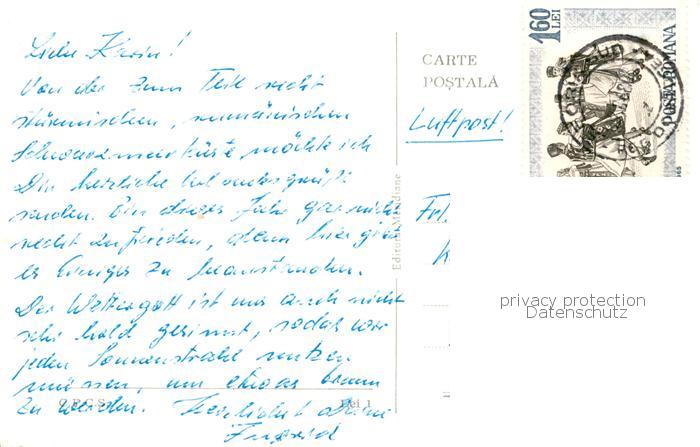 Liebe Karin!
Von der zum Teil recht
stürmischen, rumänischen
Schwarzmeerküste möchte ich
Dir herzliche Urlaubsgrüße
senden. Bin dieses Jahr gar nicht
recht zufrieden, denn hier gibt
es Einiges zu beanstanden.
Der Wettergott ist uns auch nicht
sehr hold gesinnt, sodaß wir
jeden Sonnenstrahl nutzen
müssen, um etwas braun
zu werden. Herzlichst Deine
Ingrid
Lei 1
Editura Meridiane
CARTE
POȘTALĂ
Luftpost!
Frl.
1 60
LEI
POSTA ROMANA
privacy protection
Datenschutz